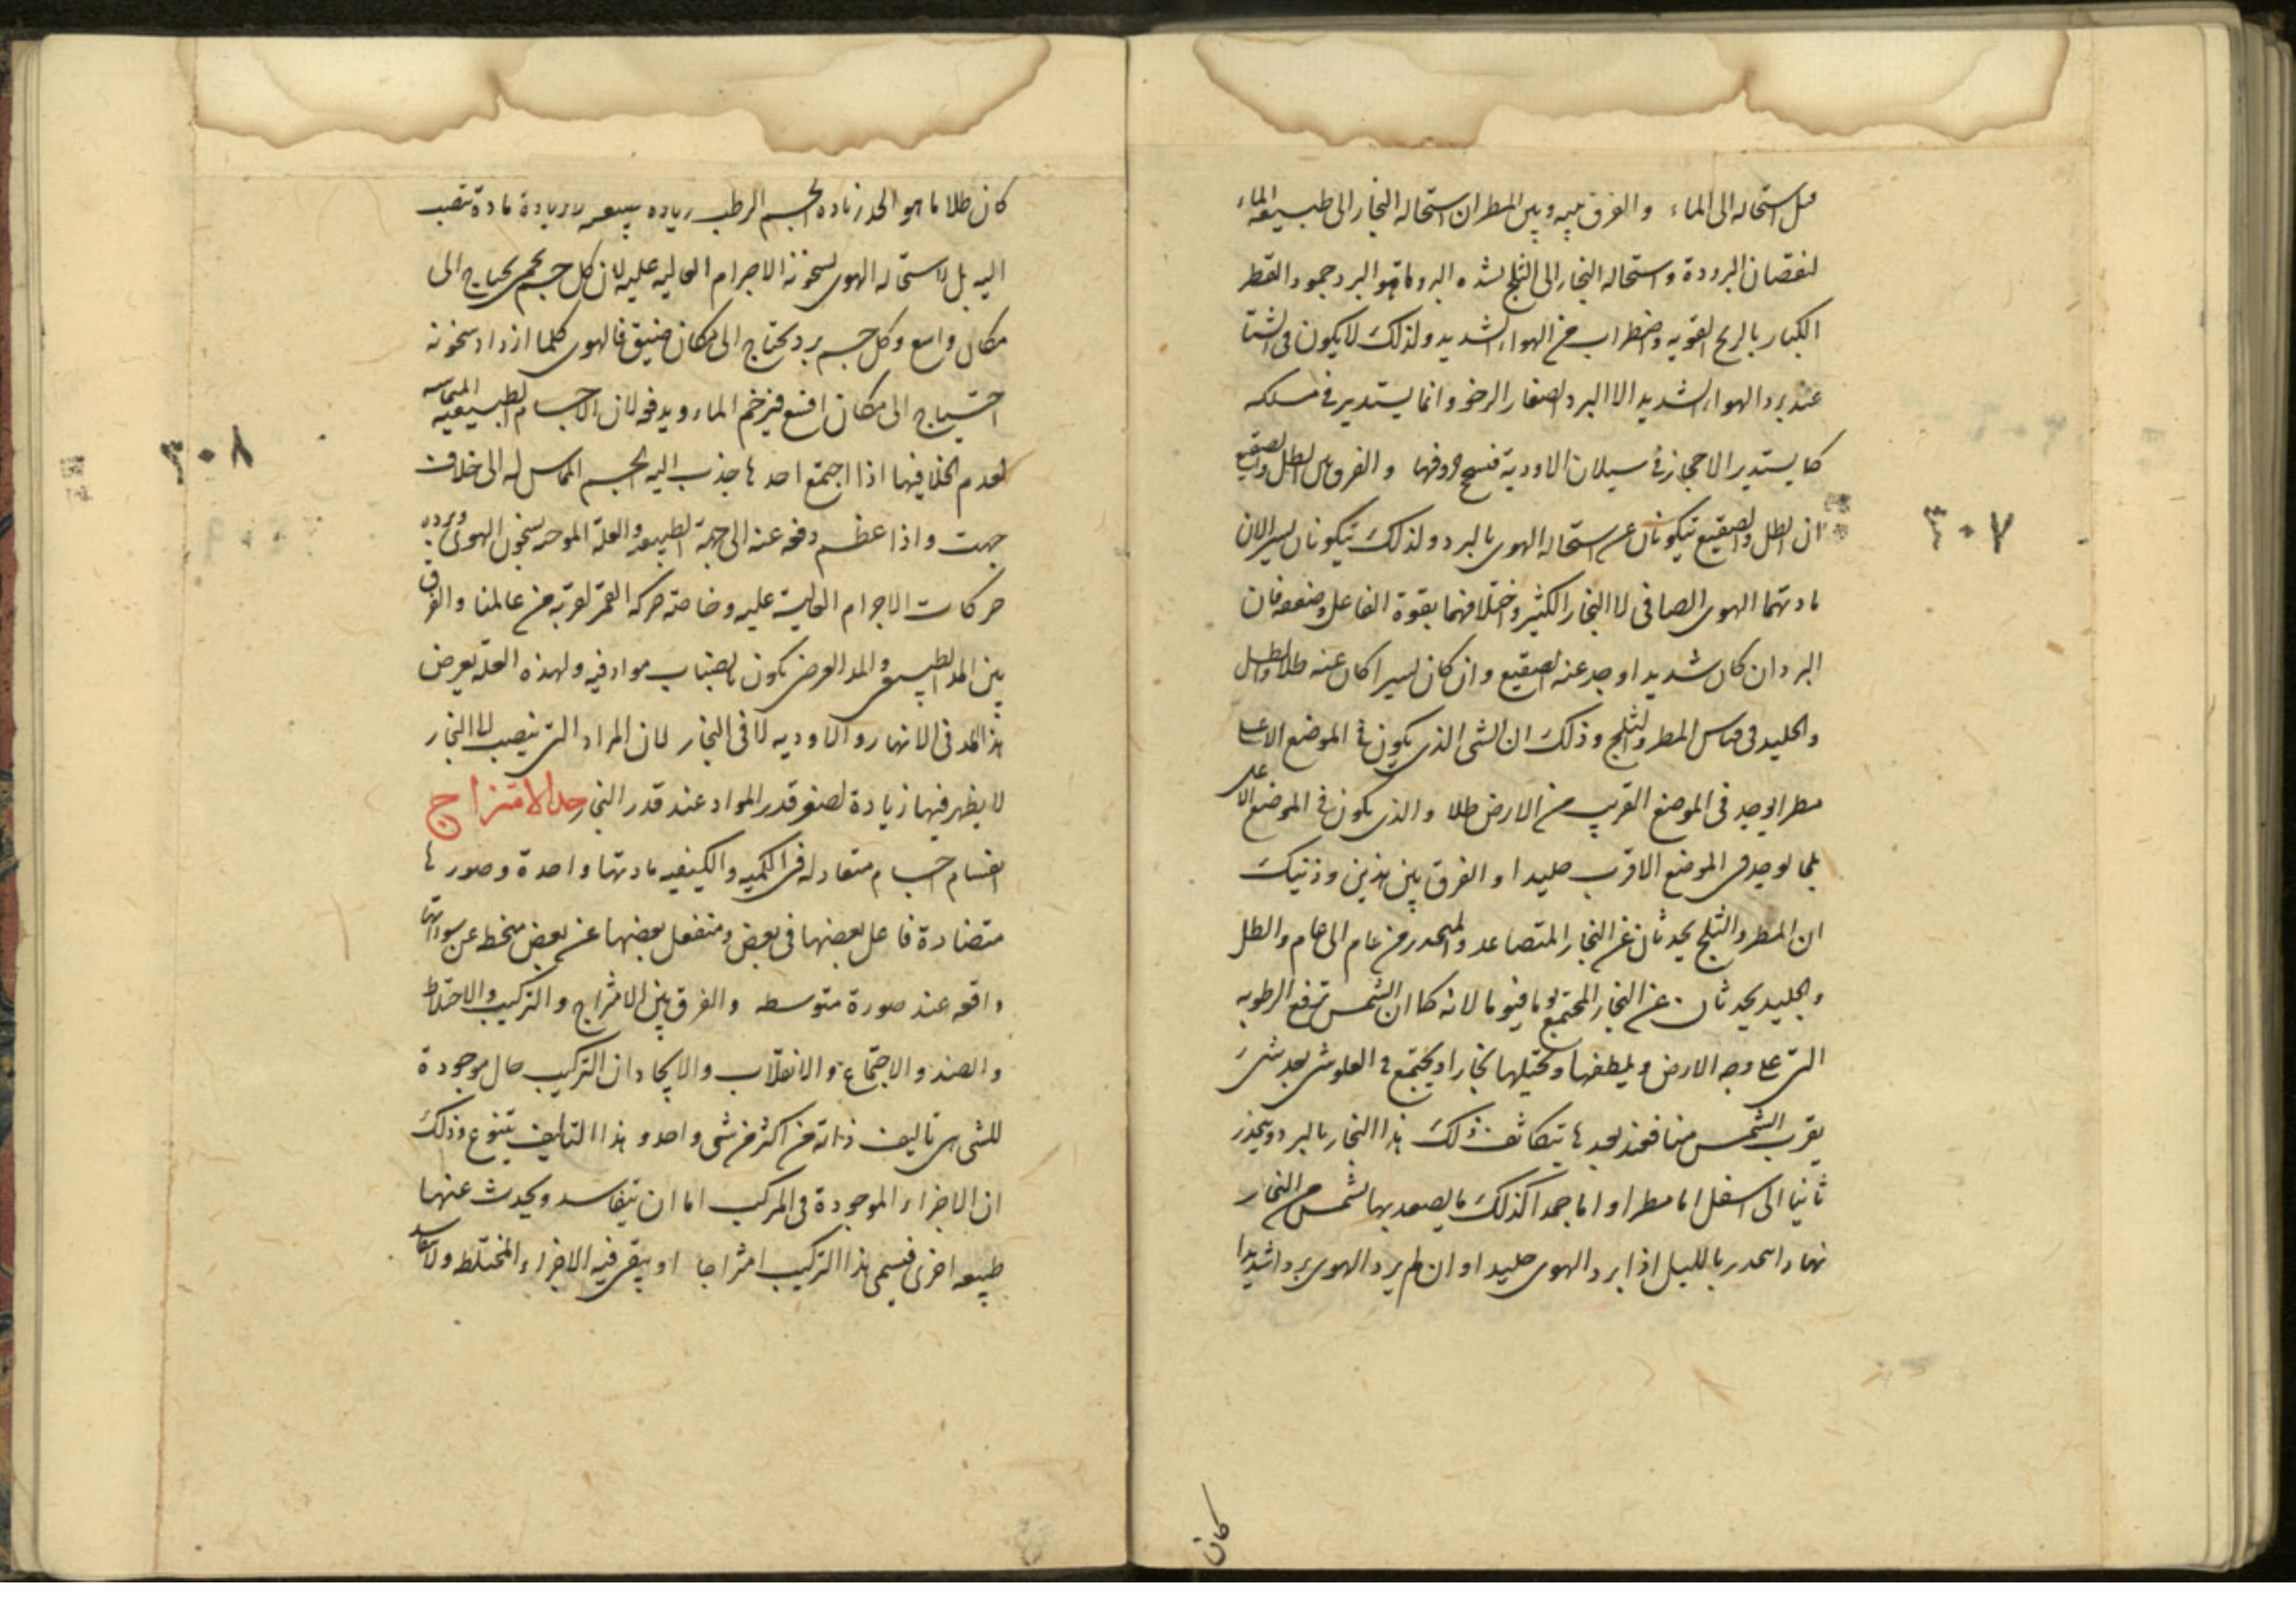 قبل استحاله الى الماء والفرق بينه وبين المطر ان استحاله البخار الى طبيعه الماء
لنقصان البرودة واستحاله البخار الى الثلج لشده البرد ما هو البرد جمود القطر
الكبار بالريح القويه واضطراب من الهواء الشديد ولذلك لا يكون فى الشتا
عند برد الهواء الشديد الا البرد الصغار الرخو وانما يستدير فى مسلكه
كما يستدير الاحجار فى سيلان الاودية فتسحج حروفها والفرق بين الطل والصقيع
ان الطل والصقيع يتكونان عن استحاله الهوى بالبرد ولذلك يتكونان لسير الان
مادتهما الهوى الصافى لا البخار الكثير واختلافهما بقوة الفاعل وضعفه فان
البرد ان كان شديدا وجد عنه الصقيع وان كان يسيرا كان عنه طلا والطل
والجليد فى قياس المطر والثلج وذلك ان الشى الذى يكون فى الموضع الاعلى
مطرا يوجد فى الموضع القريب من الارض طلا والذى يكون فى الموضع الاعلى
ثلجا يوجد فى الموضع الاقرب جليدا والفرق بين هذين وذنيك
ان المطر والثلج يحدثان عن البخار المتصاعد والمنحدر من عام الى عام والطل
والجليد يحدثان عن البخار المجتمع يوما فيوما لانه كما ان الشمس ترفع الرطوبه
التى على وجه الارض ويلطفها وتحيلها بخارا ويجتمع فى العلو شى بعد شى
يقرب الشمس منا فعند بعدها يتكاثف ذلك هذا البخار بالبرد وينحدر
ثانيا الى اسفل اما مطرا او اما جمدا كذلك ما يصعد بها الشمس من البخار
نهارا انحدر بالليل اذا برد الهوى جليدا وان لم يرد الهوى بردا شديدا
كان
٣٠٧
كان طلا ما هو المد زياده الجسم الرطب زياده طبيعيه لا زيادة مادة تنصب
اليه بل لاستحاله الهوى لسخونة الاجرام العاليه عليه لان كل جسم يحمى يحتاج الى
مكان واسع وكل جسم برد يحتاج الى مكان ضيق فالهوى كلما ازداد سخونة
احتياج الى مكان اوسع فيزخم الماء ويدفعه لان الاجسام الطبيعيه المماسه
لعدم الخلا فيها اذا اجتمع احدها جذب اليه الجسم المماس له الى خلاف
جهت واذا عظم دفعه عنه الى جهة الطبيعه والعلة الموجبه لسخون الهوى وبرده
حركات الاجرام العالية عليه وخاصة حركه القمر لقربه من عالمنا والفرق
بين المد الطبيعى والمد العرضى يكون بانصباب مواد فيه ولهذه العلة يعرض
هذا المد فى الانهار والاوديه لا فى البحار لان المراد التى ينصب لها البحار
لا يظهر فيها زيادة لصغر قدر المواد عند قدر البحر حد الامتزاج
اقسام اجسام متعادله فى الكميه والكيفيه مادتها واحدة وصورها
متضادة فاعل بعضها فى بعض ومنفعل بعضها عن بعض منحطه عن سوراتها
واقعه عند صورة متوسطه والفرق بين الامتزاج والتركيب والاختلاط
والضد والاجتماع والانقلاب والايجاد ان التركيب حال موجودة
للشى هى تاليف ذاته من اكثر من شى واحد وهذا التاليف يتنوع وذلك
ان الاجزاء الموجودة فى المركب اما ان يتفاسد ويحدث عنها
طبيعه اخرى فيسمى هذا التركيب امتزاجا او يبقى فيه الاجزاء المختلطه ولا يتفاسد
٣٠٨